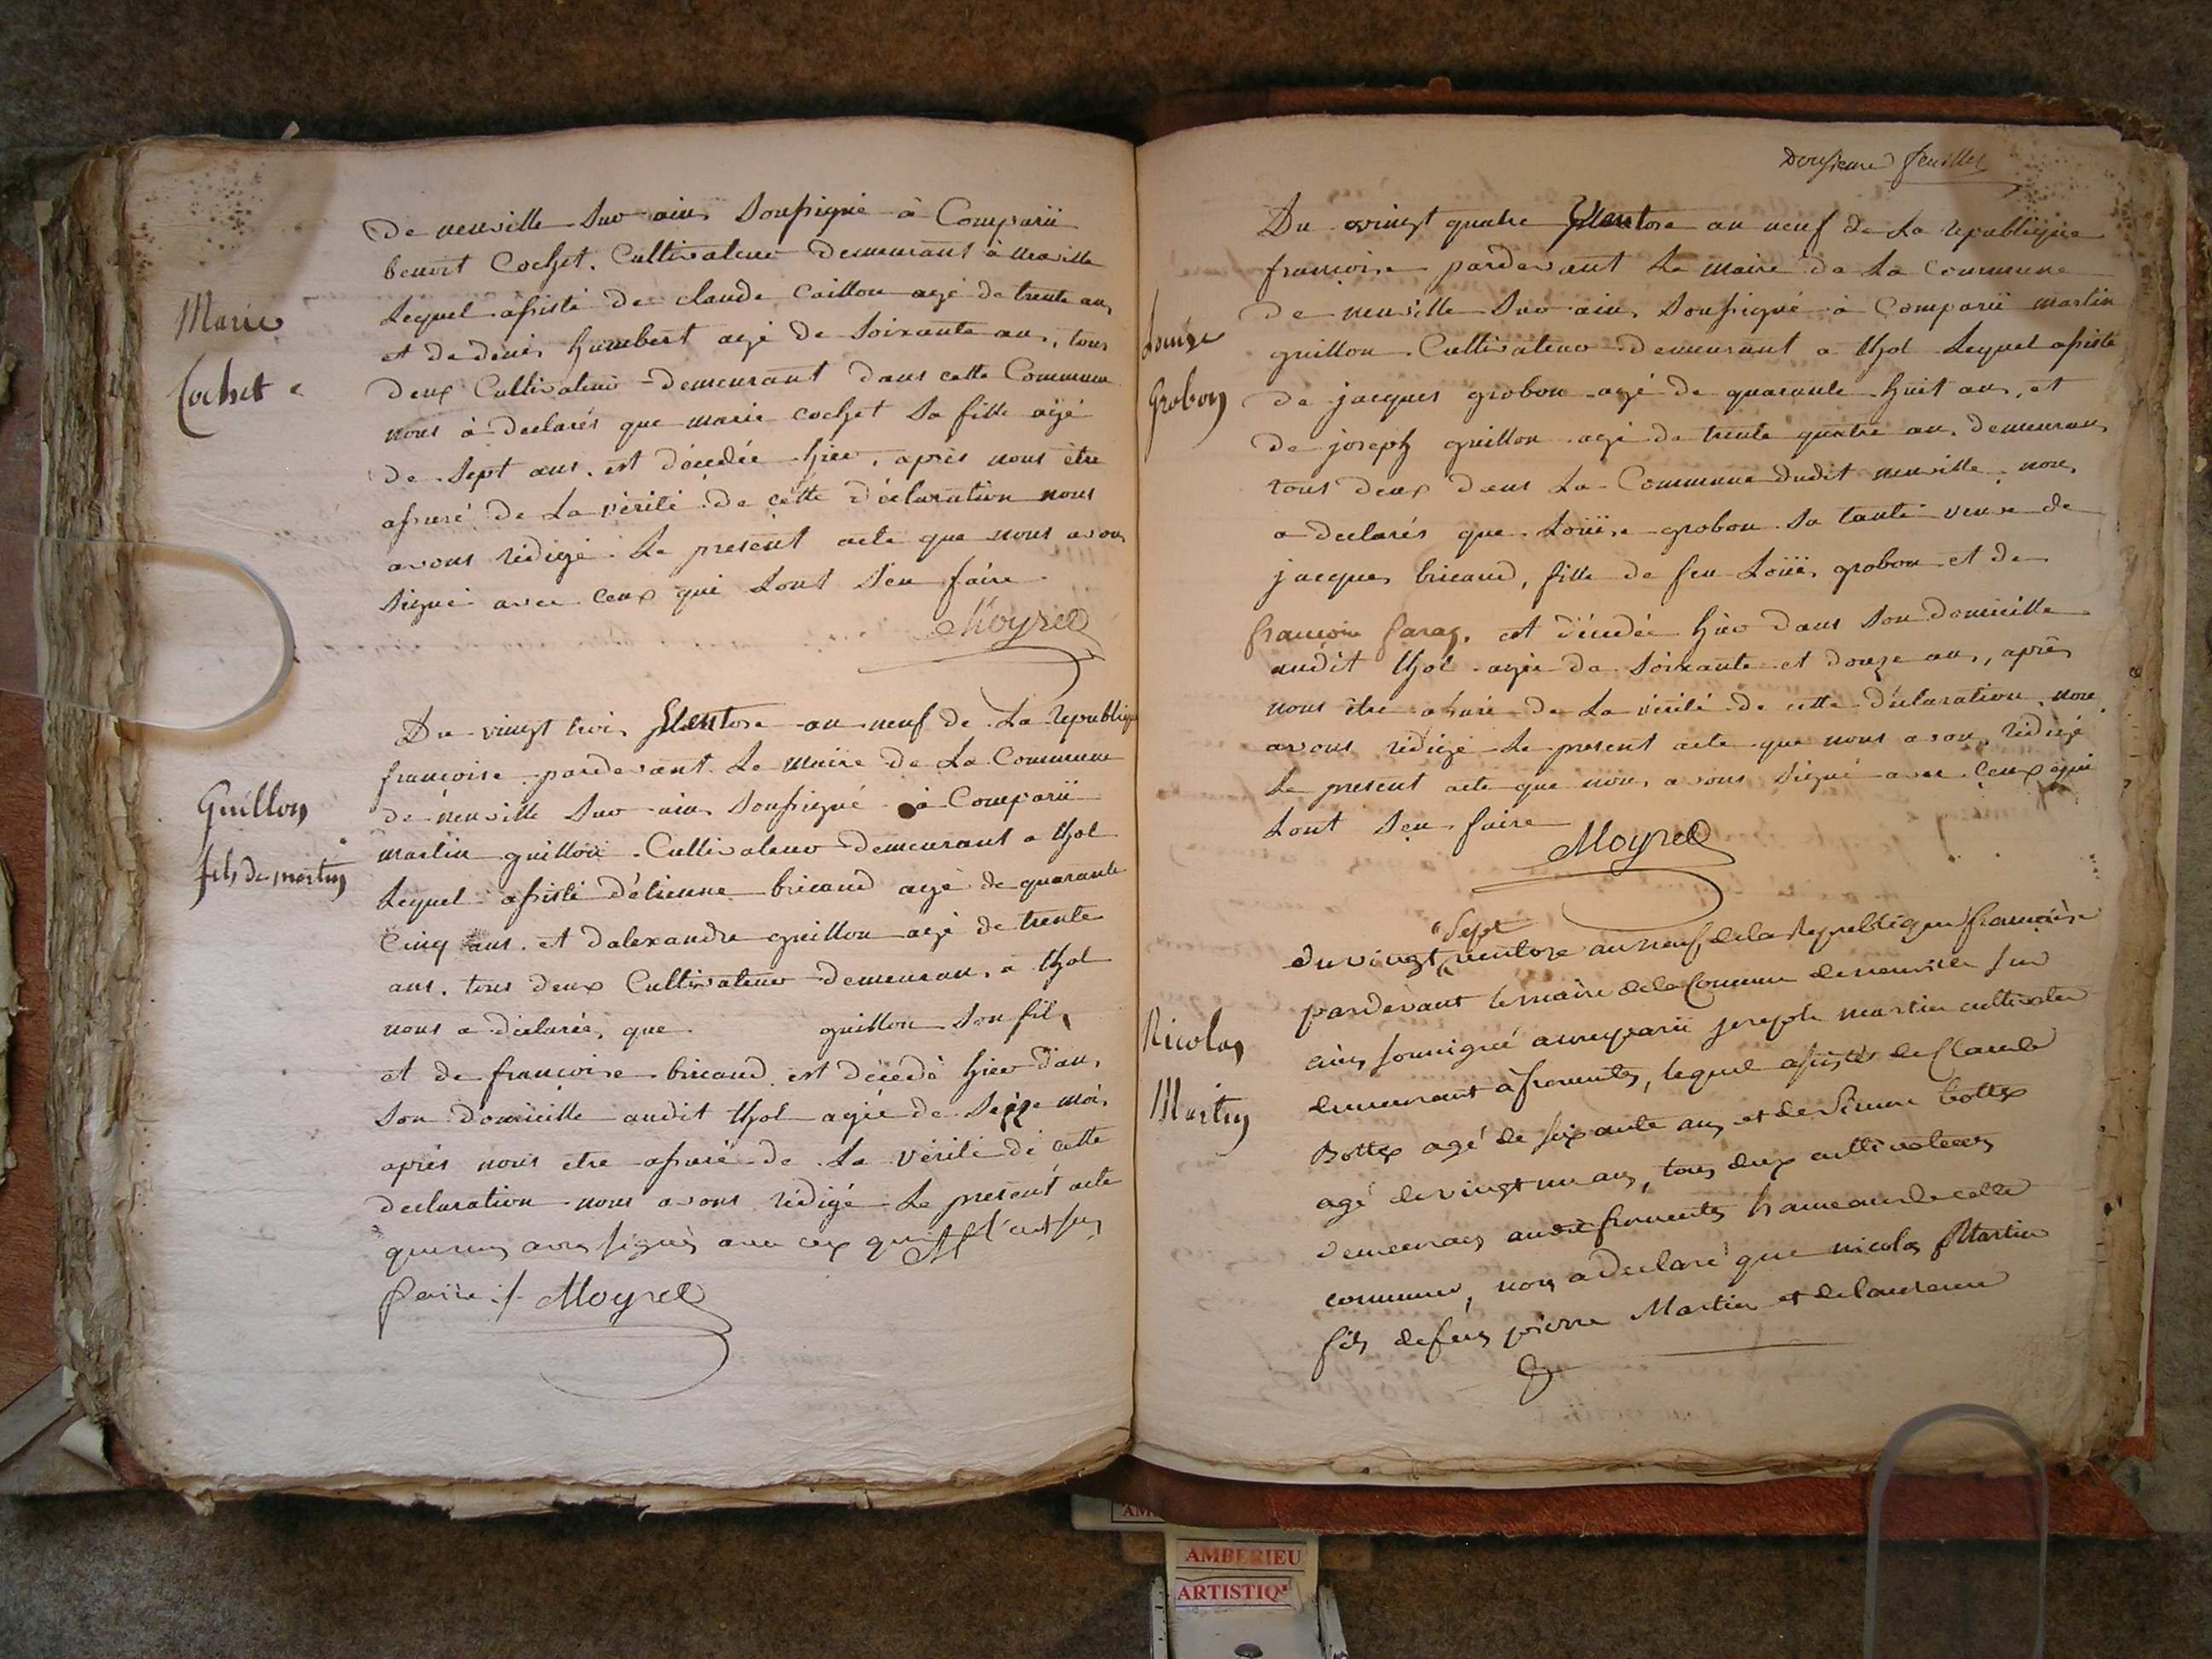 Marie
Cochet
de neuville sur ain soussigné à Comparü
benoit Cochet. Cultivateur demeurant à neuville
Lequel assisté de claude Caillou agé de trente ans
et de denis humbert agé de soixante ans, tous
deux Cultivateur demeurant dans cette Commune
nous à declarés que marie cochet sa fille agé
de sept ans. est décédée hier. après nous être
assuré de La vérité de cette déclaration nous
avons rédigé Le présent acte que nous avons
signé avec ceux qui Lont sçeu faire
Moyret
Guillon
fils de martin
Du vingt trois Ventose an neuf de La republiq
francoise pardevant Le Maire de La Commune
de neuville sur ain soussigné à Comparü
martin guillon. Cultivateur demeurant a thol
Lequel assisté d'étienne bricaud agé de quarante
Cinq ans. et dalexandre guillon agé de trente
ans. tous deux Cultivateur demeurans a thol
nous a déclarés, que guillon son fils
et de francoise bricaud est décédé hier dans
son domicille audit thol agée de seize mois
après nous etre assuré de La vérité de cette
declaration nous avons rédigé Le présent acte
que nous avons signés avec ceux qui l'ont sçu
faire ./. Moyret
Douzieme feuillet
Louise
Grobon
Du vingt quatre Ventose an neuf de La republique
francoise pardevant Le maire de La Commune
de neuville sur ain soussigné à Comparü martin
guillon. Cultivateur demeurant a thol Lequel assisté
de jacques grobon agé de quarante huit ans, et
de joseph guillon agé de trente quatre ans demeurans
tous deux dans La Commune dudit neuville. nous
a declarés que Loüise grobon sa tante veuve de
jacques bricaud, fille de feu Loüis grobon et de
francoise est décédée hier dans son domicille
audit thol agée de soixante et douze ans, après
nous être assuré de La vérité de cette déclaration nous
avons rédigé Le present acte que nous avons rédigé
Le present acte que nous avons signé avec ceux qui
Lont sçeu faire
Moyret
Nicolas
Martin
sept
du vingt ventose an neuf de la Republique francoise
pardevant le maire de la Commune de neuville sur
ain soussigné a comparü joseph martin cultivateur
demeurant à fromentes, lequel assisté de Claude
Bottex agé de soixante ans et de Bottex
agé de vingt un ans, tous deux cultivateurs
demeurans audit fromentes hameau de cette
commune, nous a déclaré que nicolas Martin
fils de feu pierre Martin et de